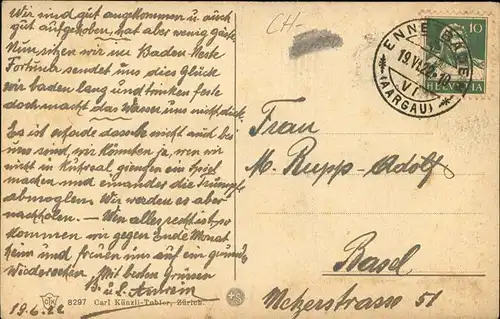 Wir sind gut angekommen u. auch
gut aufgehoben, hat aber wenig Gäste
Nun sitzen wir in Baden
Fortuna sendet uns dies Glück
Wir baden lang und trinken feste
doch macht das Wasser uns nicht dick.
Es ist schade dass nicht mit bei
uns sind, wir könnten ja, wenn wir
nicht in giengen ein Spiel
machen und einander die Trümpfe
abmoglen. Wir werden es aber
nachholen. — Wenn alles recht ist, so
kommen wir gegen Ende Monat
heim und freuen uns auf ein
Wiedersehen. Mit besten Grüssen
B. u. L.
19.6.22
CH-
ENNETBADEN
19.VI.22.-10
VI
(AARGAU)
10
HELVETIA
Frau
M. Rupp-Adolf
Basel
Metzerstrasse 51
8297 Carl Künzli-Tobler, Zürich.